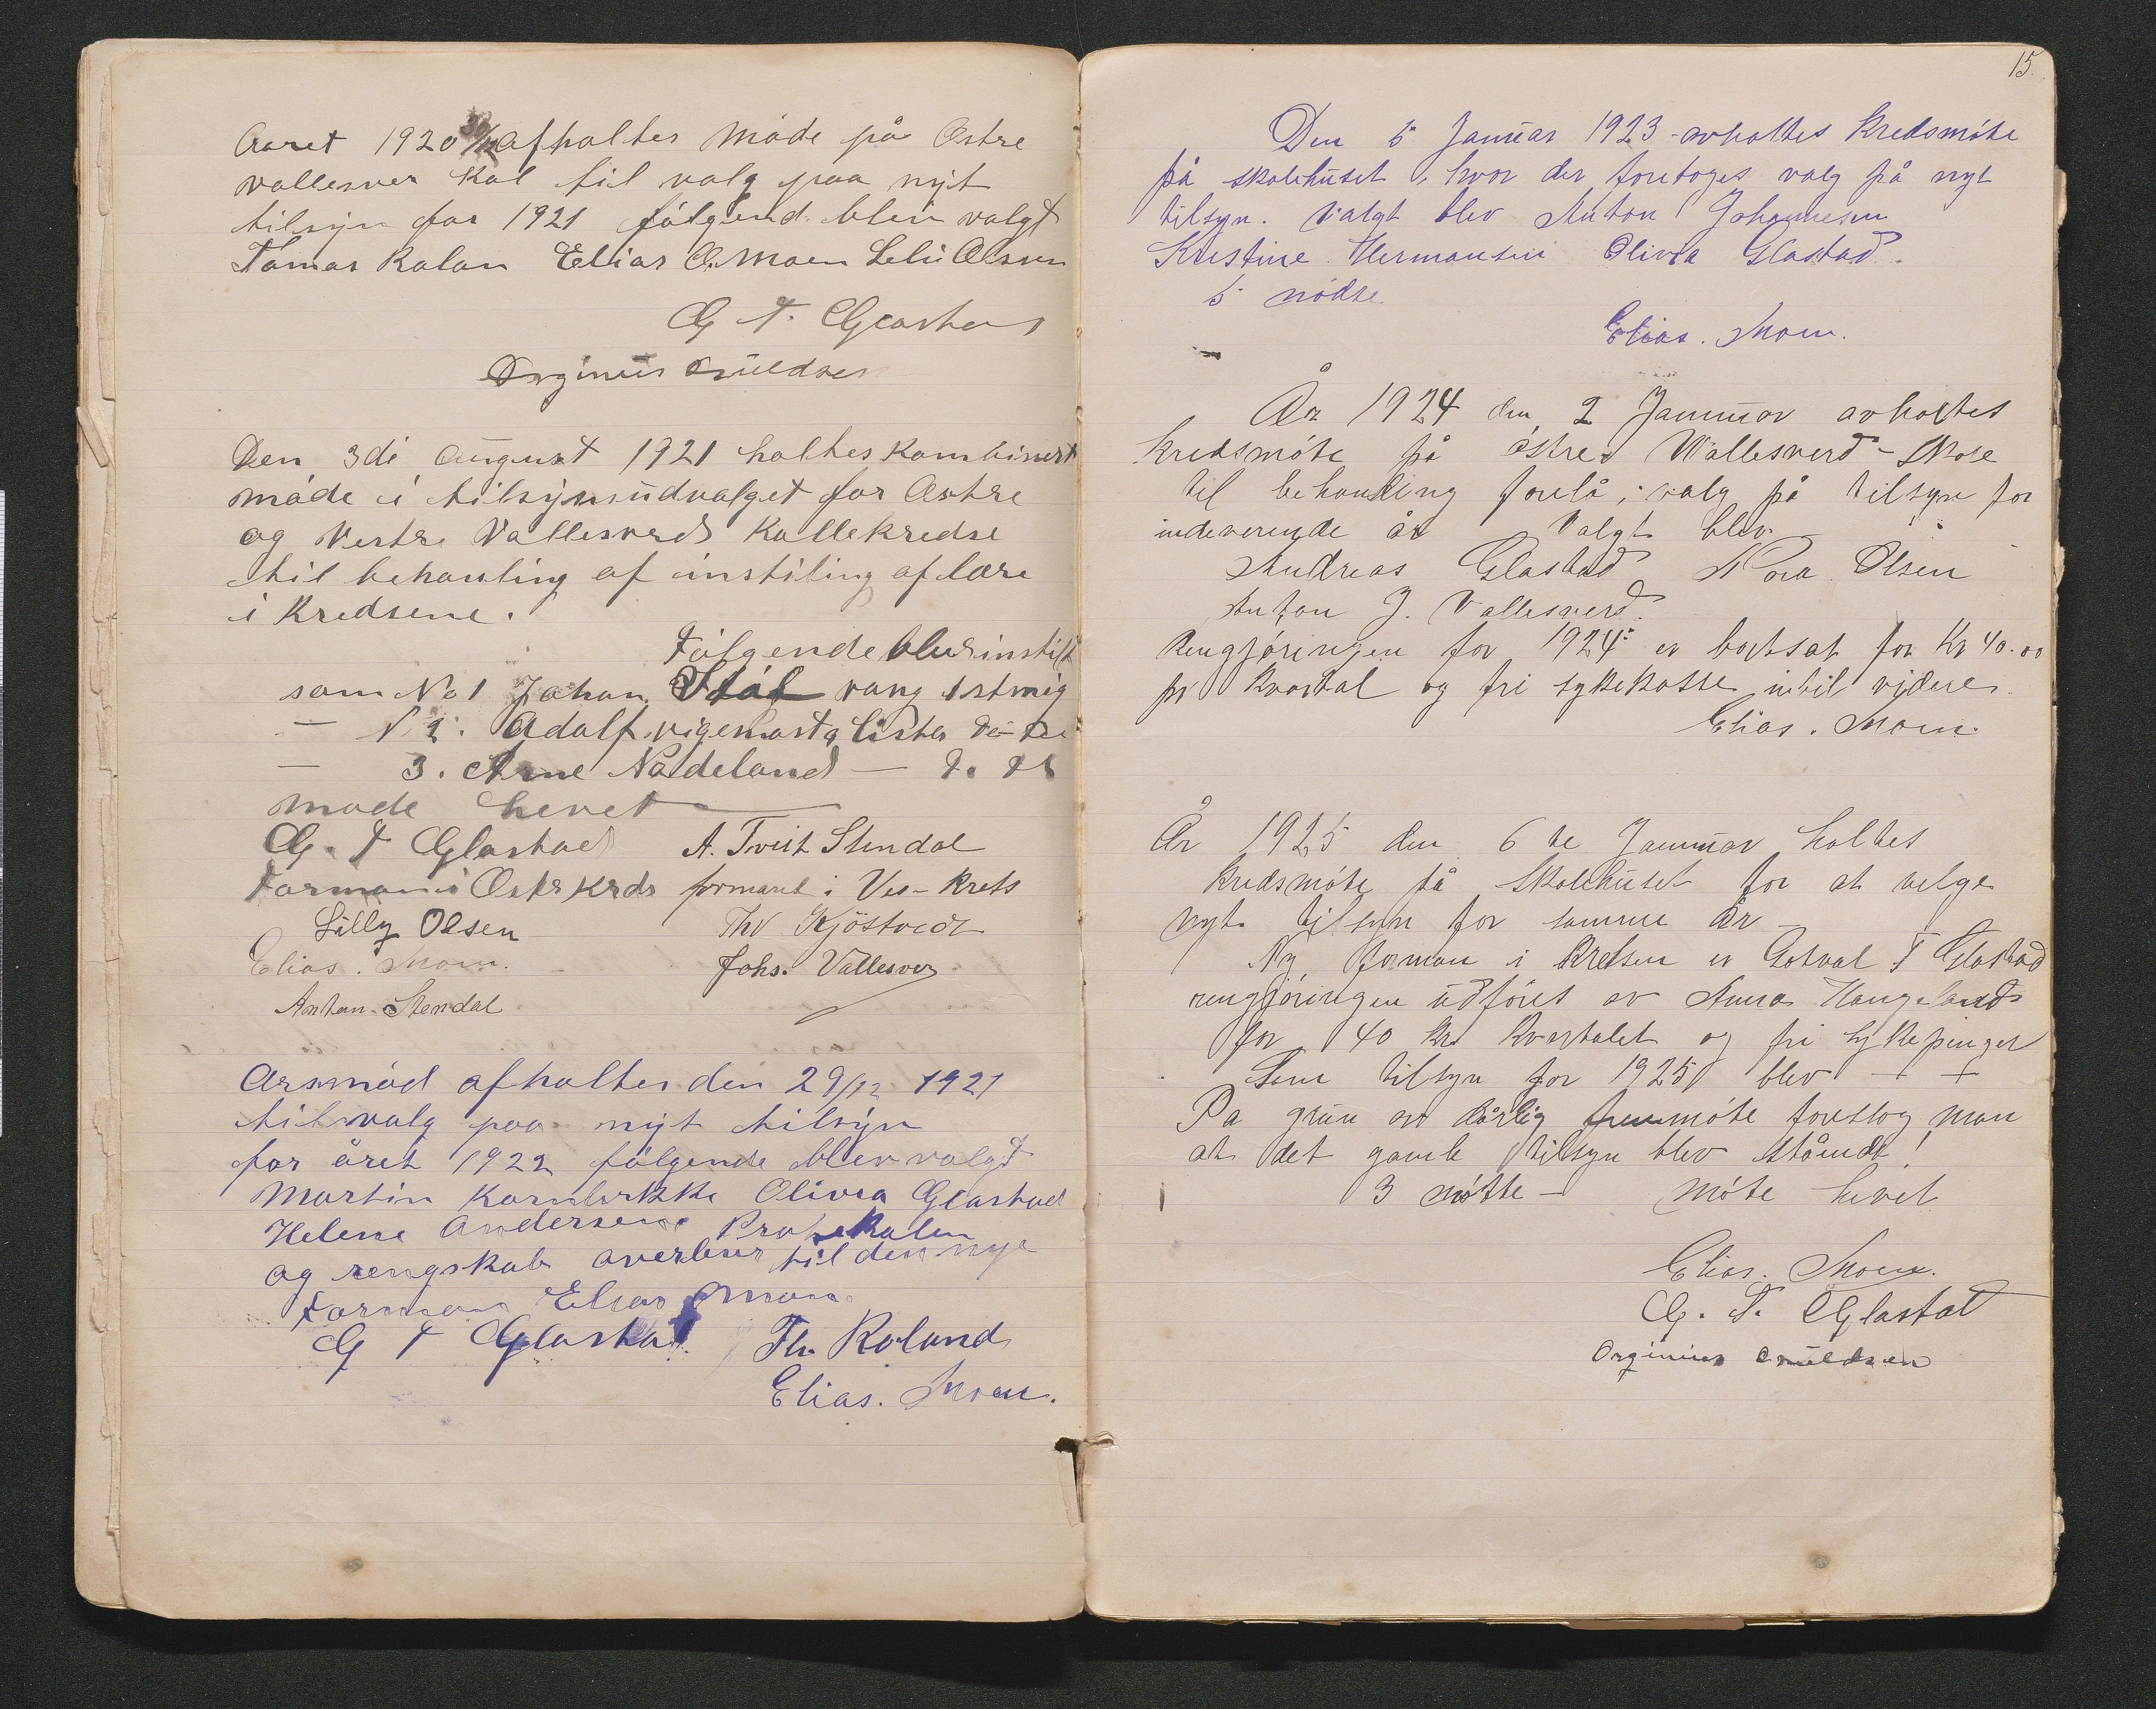 Aaret 1920 30/12 afholtes Møde på Østre
Vallesver Skol til valg paa nyt
tilsyn for 1921 følgend blev valgt
Tomas Rolan Elias O. Moen Lelli Olsen
G T. Glastad
Orginius Knudsen
Den 3di august 1921 holtes kombinert
møde i tilsynsudvalget for Østre
og Vestre Vallesverds skollekredse
til behanling af instiling af lære
i kredsene.
Følgende blev instilt
som No 1 Johan
N 2. Adolf
3. Arne Nådeland
møde hevet
G. T Glastad A. Tveit Stendal
Formand i Østr Krds formand i Ves-krets
Lilly Olsen Thv Kjöstvedt
Elias. Moen. Johs. Vallesver
Anton. Stendal
Arsmød afholtes den 29/12 1921
til valg paa nyt tilsyn
for året 1922 følgende blev valgt
Martin Kornbrekke Olivia Glastad
Helene Andersen Protokolen
og rengskab overlever til den nye
Forman Elias Moen
G T Glastad Th. Roland
Elias. Moen.
15.
Den 5 Januar 1923 avholtes Kredsmöte
på skolehuset, hvor der foretoges valg på nyt
tilsyn. Valgt blev Anton Johannesen
Kristine Hermansen Olivia Glastad.
5 mödte
Elias. Moen.
År 1924 den 2 Januar avholtes
kredsmöte på östre Vallesverd-Skole
til behandling forelå; valg på tilsyn for
indeverende år Valgt blev
Andreas Glastad Nora Olsen
Anton J. Vallesverd.
Rengjöringen for 1924 er bortsat for Kr 40.00
pr kvartal og fri sykekasse intil vidre.
Elias. Moen.
År 1925 den 6 te Januar holtes
Kredsmöte på Skolehuset for at velge
nyt tilsyn for samme år
Ny forman i kretsen er Gotval T Glastad
rengjöringen udföres av Anna Haugeland
for 40 kr kvartalet og fri sykepenger
Som tilsyn for 1925 blev - +
Pa grun av dårlig fremmöte foreslog man
at det gamle tilsyn blev stående!
3 mötte - möte hevet
Elias. Moen.
G. T. Glastad
Orginius Knudsen